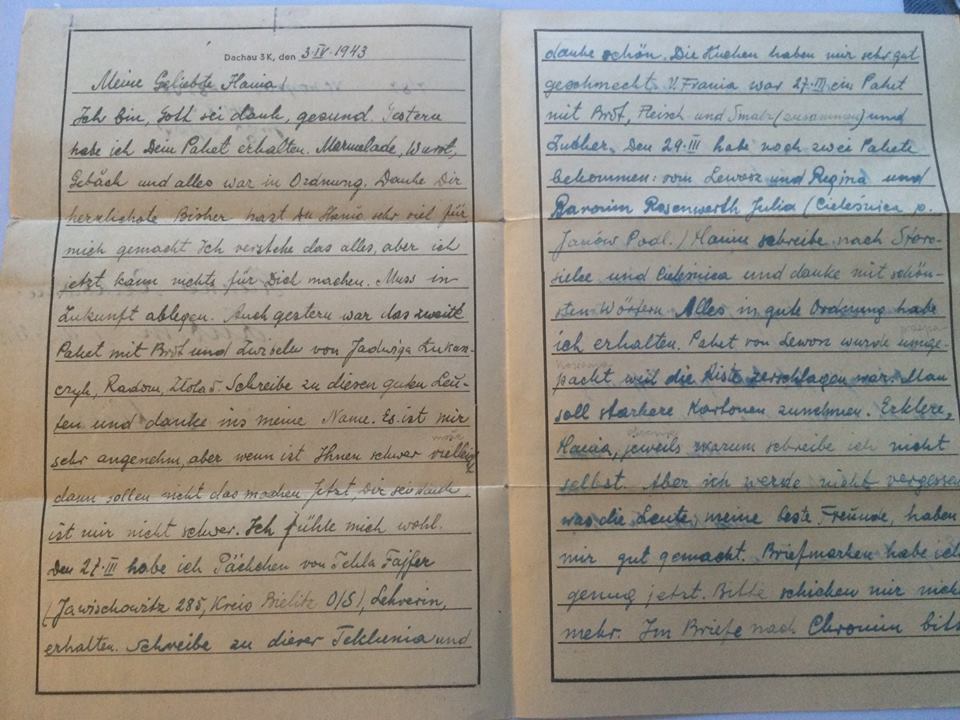 Dachau 3K, den 3·IV·1943
Meine Geliebte Hania!
Ich bin, Gott sei dank, gesund. Gestern
habe ich Dein Paket erhalten. Marmelade, Wurst,
Gebäch und alles war in Ordnung. Danke Dir
herzlichste Bisher hast Du Hania sehr viel für
mich gemacht Ich verstehe das alles, aber ich
jetzt kann nichts für Dich machen. Muss in
Zukunft ablegen. Auch gestern war das zweite
Paket mit Brot und Zwiebeln von Jadwiga Łukasz-
czyk, Radom, Złota 5. Schreibe zu diesen guten Leu-
ten und danke ins meine Name. Es ist mir
sehr angenehm, aber wenn ist Ihnen schwer vielleicht
dann sollen nicht das machen Jetzt, Dir sei dank,
ist mir nicht schwer. Ich fühle mich wohl.
Den 27·III habe ich Päckchen von Tekla Fajfer
(Jawischowitz 285, Kreis Bielitz O/S), Lehrerin,
erhalten. Schreibe zu dieser Teklunia und
danke schön. Die Kuchen haben mir sehr gut
geschmeckt. V. Frania war 27·III ein Paket
mit Brot, Fleisch und Smalz (zusammen) und
Zucker. Den 29·III habe noch zwei Pakete
bekommen: vom Lewosz und Regina und
Baronin Rosenwerth Julia (Cieleśnica p.
Janów Podl.) Hania schreibe nach Staro-
sielce und Cieleśnica und danke mit schön-
sten Wörtern. Alles in gute Ordnung habe
ich erhalten. Paket von Lewosz wurde umge-
packt, weil die Kiste zerschlagen war. Man
soll starkere Kartonen zunehmen. Erklere,
Hania, jeweils warum schreibe ich nicht
selbst. Aber ich werde nicht vergessen
was die Leute, meine beste Freunde, haben
mir gut gemacht. Briefmarken habe ich
genug jetzt. Bitte schicken mir nicht
mehr. Im Briefe nach Chromin bitte